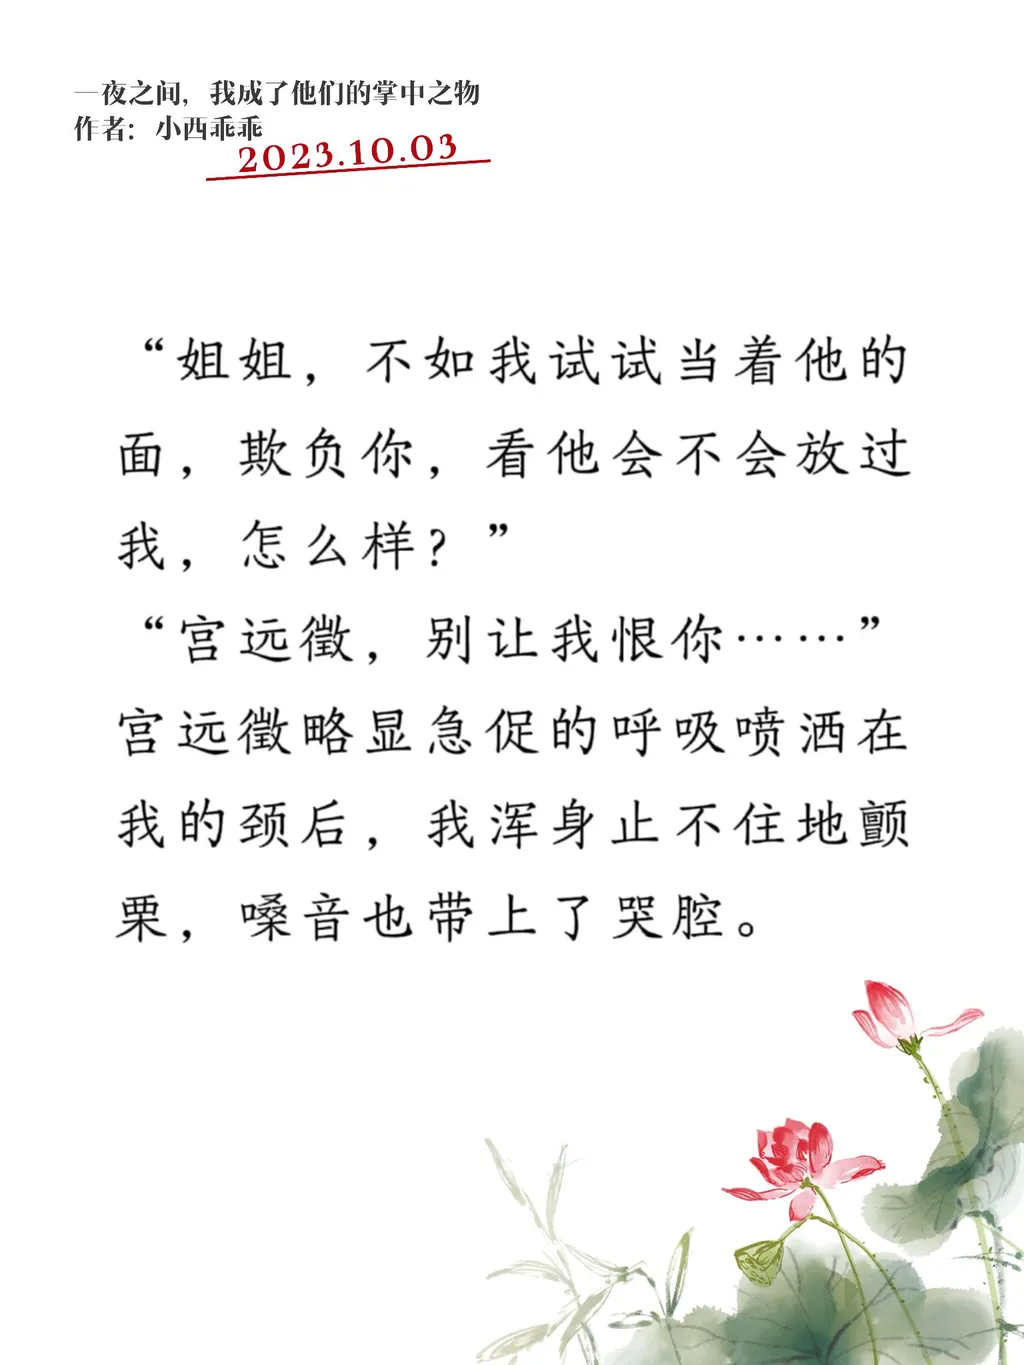 一夜之间，我成了他们的掌中之物
作者：小西乖乖
2023.10.03
“姐姐，不如我试试当着他的
面，欺负你，看他会不会放过
我，怎么样？”
“宫远徵，别让我恨你……”
宫远徵略显急促的呼吸喷洒在
我的颈后，我浑身止不住地颤
栗，嗓音也带上了哭腔。